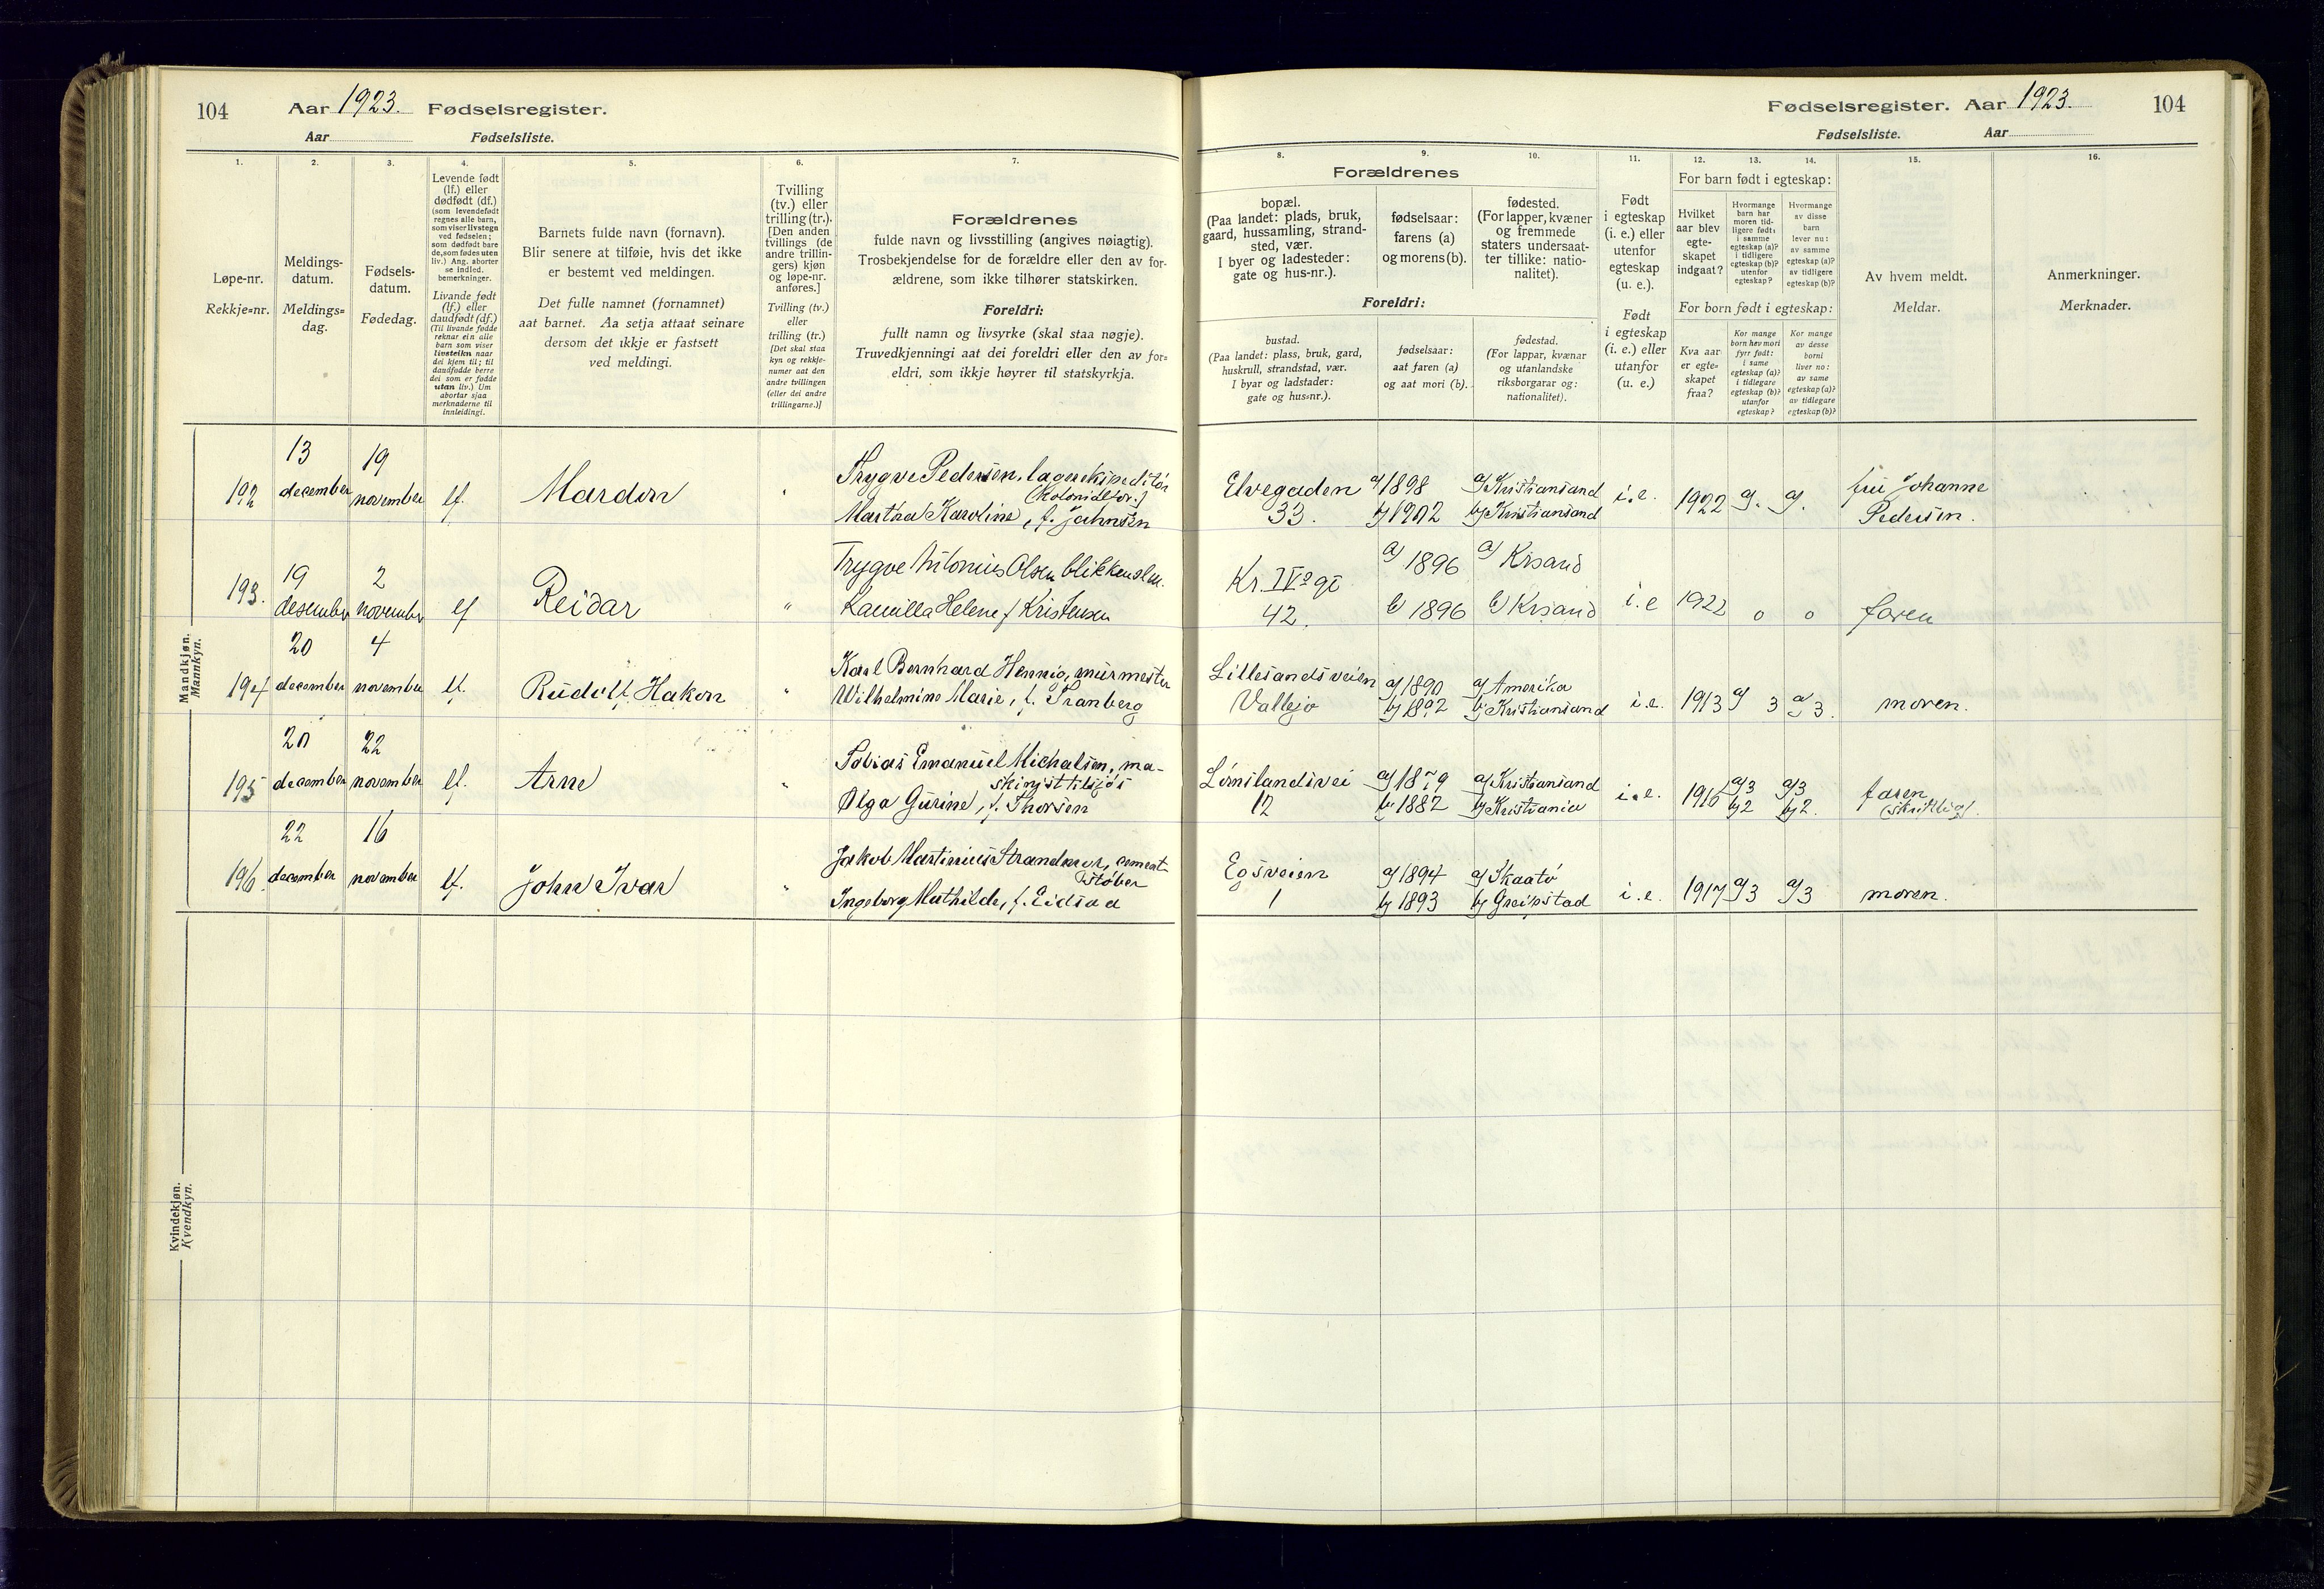 104 Aar 1923. Fødselsregister.
Aar Fødselsliste.
1. 2. 3. 4. 5. 6. 7.
Løpe-nr.
Rekkje=nr.
Meldings-
datum.
Meldings=
dag.
Fødsels-
datum.
Fødedag.
Levende født
(lf.) eller
dødfødt (df.)
(som levendefødt
regnes alle barn,
som viser livstegn
ved fødselen;
som dødfødt bare
de, som fødes uten
liv.) Ang. aborter
se indled.
bemerkninger.
Livande født
(lf.) eller
daudfødt (df.)
(Til livande fødde
reknar ein alle
barn som viser
livsteikn naar
dei kjem til; til
daudfødde berre
dei som er fødde
utan liv.) Um
abortar sjaa
merknaderne til
innleidingi.
Barnets fulde navn (fornavn).
Blir senere at tilføie, hvis det ikke
er bestemt ved meldingen.
Det fulle namnet (fornamnet)
aat barnet. Aa setja attaat seinare
dersom det ikkje er fastsett
ved meldingi.
Tvilling
(tv.) eller
trilling (tr.).
[Den anden
tvillings (de
andre trillin-
gers) kjøn
og løpe-nr.
anføres.]
Tvilling (tv.)
eller
trilling (tr.)
[Det skal staa
kyn og rekkje-
numer aat den
andre tvillingen
(eller dei andre
trillingarne.)]
Forældrenes
fulde navn og livsstilling (angives nøiagtig).
Trosbekjendelse for de forældre eller den av for-
ældrene, som ikke tilhører statskirken.
Foreldri:
fullt namn og livsyrke (skal staa nøgje).
Truvedkjenningi aat dei foreldri eller den av for=
eldri, som ikkje høyrer til statskyrkja.
Mandkjøn.
Mankyn.
13 19
192 december november lf. Mardon
Trygve Pedersen, lagerekspeditør
(Kolonialfor.)
Martha Karoline, f. Jahnsen
19 2
193. desember november lf Reidar "
Trygve Antonius Olsen blikkensl.
Kamilla Helene f Kristensen
20 4
194 december november lf. Rudolf Hakon "
Karl Bernhard Hennig, murmester
Wilhelmine Marie, f. Tranberg
20 22
195 december november lf. Arne "
Tobias Emanuel Michalsen, ma-
skinist tilsjøs
Olga Gurine, f. Thorsen
22 16
196. december november lf. John Ivar "
Jakob Martinius Strandmyr, cement-
støber
Ingeborg Mathilde, f. Eidsaa
Kvindekjøn.
Kvendkyn.
Fødselsregister. Aar 1923. 104
Fødselsliste. Aar
8. 9. 10. 11. 12. 13. 14. 15. 16.
Forældrenes
bopæl.
(Paa landet: plads, bruk,
gaard, hussamling, strand-
sted, vær.
I byer og ladesteder:
gate og hus-nr.).
fødselsaar:
farens (a)
og morens (b).
fødested.
(For lapper, kvæner
og fremmede
staters undersaat-
ter tillike: natio-
nalitet).
Foreldri:
bustad.
(Paa landet: plass, bruk, gard,
huskrull, strandstad, vær.
I byar og ladstader:
gate og hus=nr.).
fødselsaar:
aat faren (a)
og aat mori (b).
fødestad.
(For lappar, kvænar
og utanlandske
riksborgarar og:
nationalitet).
Født
i egteskap
(i. e.) eller
utenfor
egteskap
(u. e.).
Født
i egteskap
(i. e.) eller
utanfor
(u. e.)
For barn født i egteskap:
Hvilket
aar blev
egte-
skapet
indgaat?
Hvormange
barn har
moren tid-
ligere født:
i samme
egteskap (a)?
i tidligere
egteskap (b)?
utenfor
egteskap?
Hvormange
av disse
barn
lever nu:
av samme
egteskap (a)?
av tidligere
egteskap (b)?
For born født i egteskap:
Kva aar
er egte=
skapet
fraa?
Kor mange
born hev mori
fyrr født:
i same
egteskap (a)?
i tidlegare
egteskap (b)?
utanfor
egteskap?
Kor mange
av desse
borni
liver no:
av same
egteskap (a)?
av tidlegare
egteskap (b)?
Av hvem meldt.
Meldar.
Anmerkninger.
Merknader.
Elvegaden a/ 1898 a/ Kristiansand i. e. 1922 fru Johanne
33. b/ 1902 b/ Kristiansand Pedersen.
Kr. IVs gt a/ 1896 a/ Krsand
42. b/ 1896 b/ Krsand i. e 1922 o o faren
Lillesandsveien a/ 1890 a/ Amerika i. e. 1913 a/ 3 a/ 3. moren.
Vallejo b/ 1892 b/ Kristiansand
Lømslandsvei a/ 1879 a/ Kristiansand i. e. 1916 a/3 a/3 faren
12 b/ 1882 b/ Kristiania b/2 b/2. (skriftlig).
Egsveien a/ 1894 a/ Skaatø i. e. 1917 a/3 a/3 moren.
1 b/ 1893 b/ Greipstad